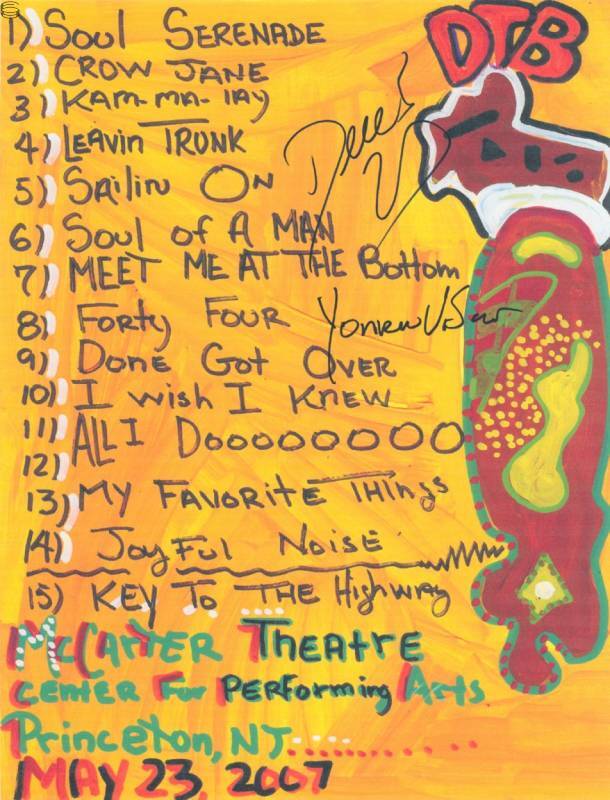 DTB
1) Soul SERENADE
2) CROW JANE
3) KAM-MA-LAY
4) LEAVIN TRUNK
5) SAILIN ON
6) Soul of A MAN
7) MEET ME AT THE Bottom
8) Forty FOUR
9) DONE GOT OVER
10) I wish I KNEW
11) ALL I DOOOOOOOOO
12)
13) MY FAVORITE THINGS
14) Joyful NOISE
15) KEY TO THE Highway
McCARTER THEATRE
CENTER For PERForming Arts
Princeton, NJ...........
MAY 23, 2007